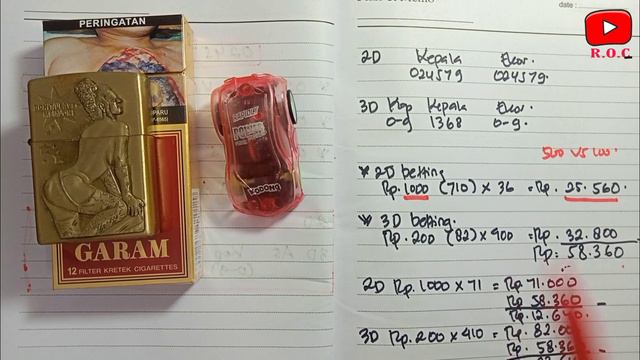 PERINGATAN
GARAM
12 FILTER KRETEK CIGARETTES
POWER
KODONG
date :
R.O.C
2D Kepala Ekor.
024579 024579.
3D Kop Kepala Ekor.
0-9 1368 0-9.
500 VS 100.
* 2D betting
Rp. 1000 (710) x 36 = Rp. 25.560
* 3D betting.
Rp. 200 (82) x 400 = Rp. 32.800
Rp. 58.360
2D Rp. 1000 x 71 = Rp 71.000
Rp 58.360
Rp. 12.640
3D Rp. 200 x 410 = Rp. 82.00
Rp. 58.36